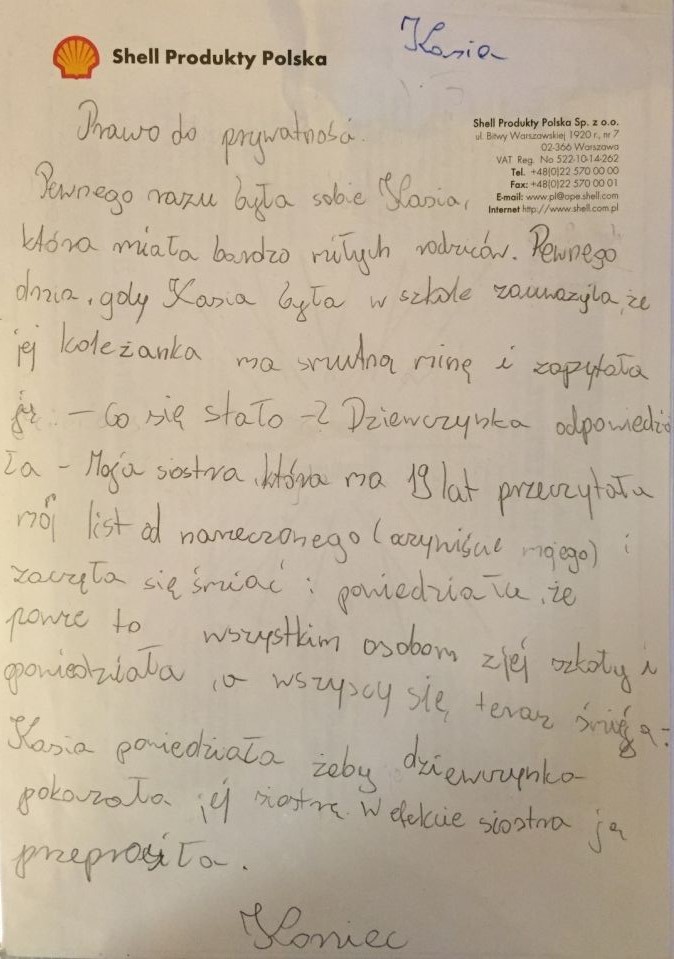 Kasia
Shell Produkty Polska
Shell Produkty Polska Sp. z o.o.
ul. Bitwy Warszawskiej 1920 r., nr 7
02-366 Warszawa
VAT Reg. No 522-10-14-262
Tel. +48(0)22 570 00 00
Fax: +48(0)22 570 00 01
E-mail: www.pl@ope.shell.com
Internet http://www.shell.com.pl
Prawo do prywatności.
Pewnego razu była sobie Kasia,
która miała bardzo miłych rodziców. Pewnego
dnia, gdy Kasia była w szkole zauważyła, że
jej koleżanka ma smutną minę i zapytała
ją: – Co się stało –? Dziewczynka odpowiedzia
ła – Moja siostra, która ma 19 lat przeczytała
mój list od narzeczonego (oczywiście mojego) i
zaczęła się śmiać i powiedziała, że
powie to wszystkim osobom z jej szkoły i
powiedziała, a wszyscy się teraz śmieją.
Kasia powiedziała żeby dziewczynka
pokazała jej siostrę. W efekcie siostra ją
przeprosiła.
Koniec